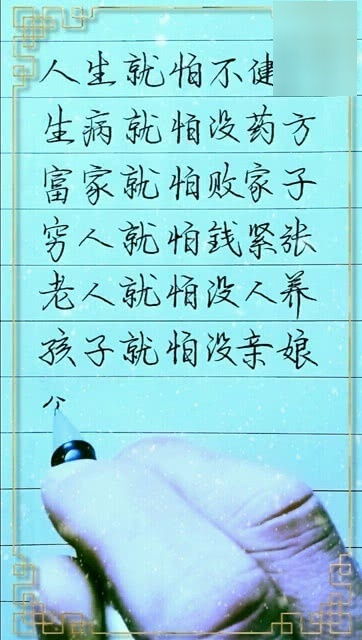 人生就怕不健
生病就怕没药方
富家就怕败家子
穷人就怕钱紧张
老人就怕没人养
孩子就怕没亲娘